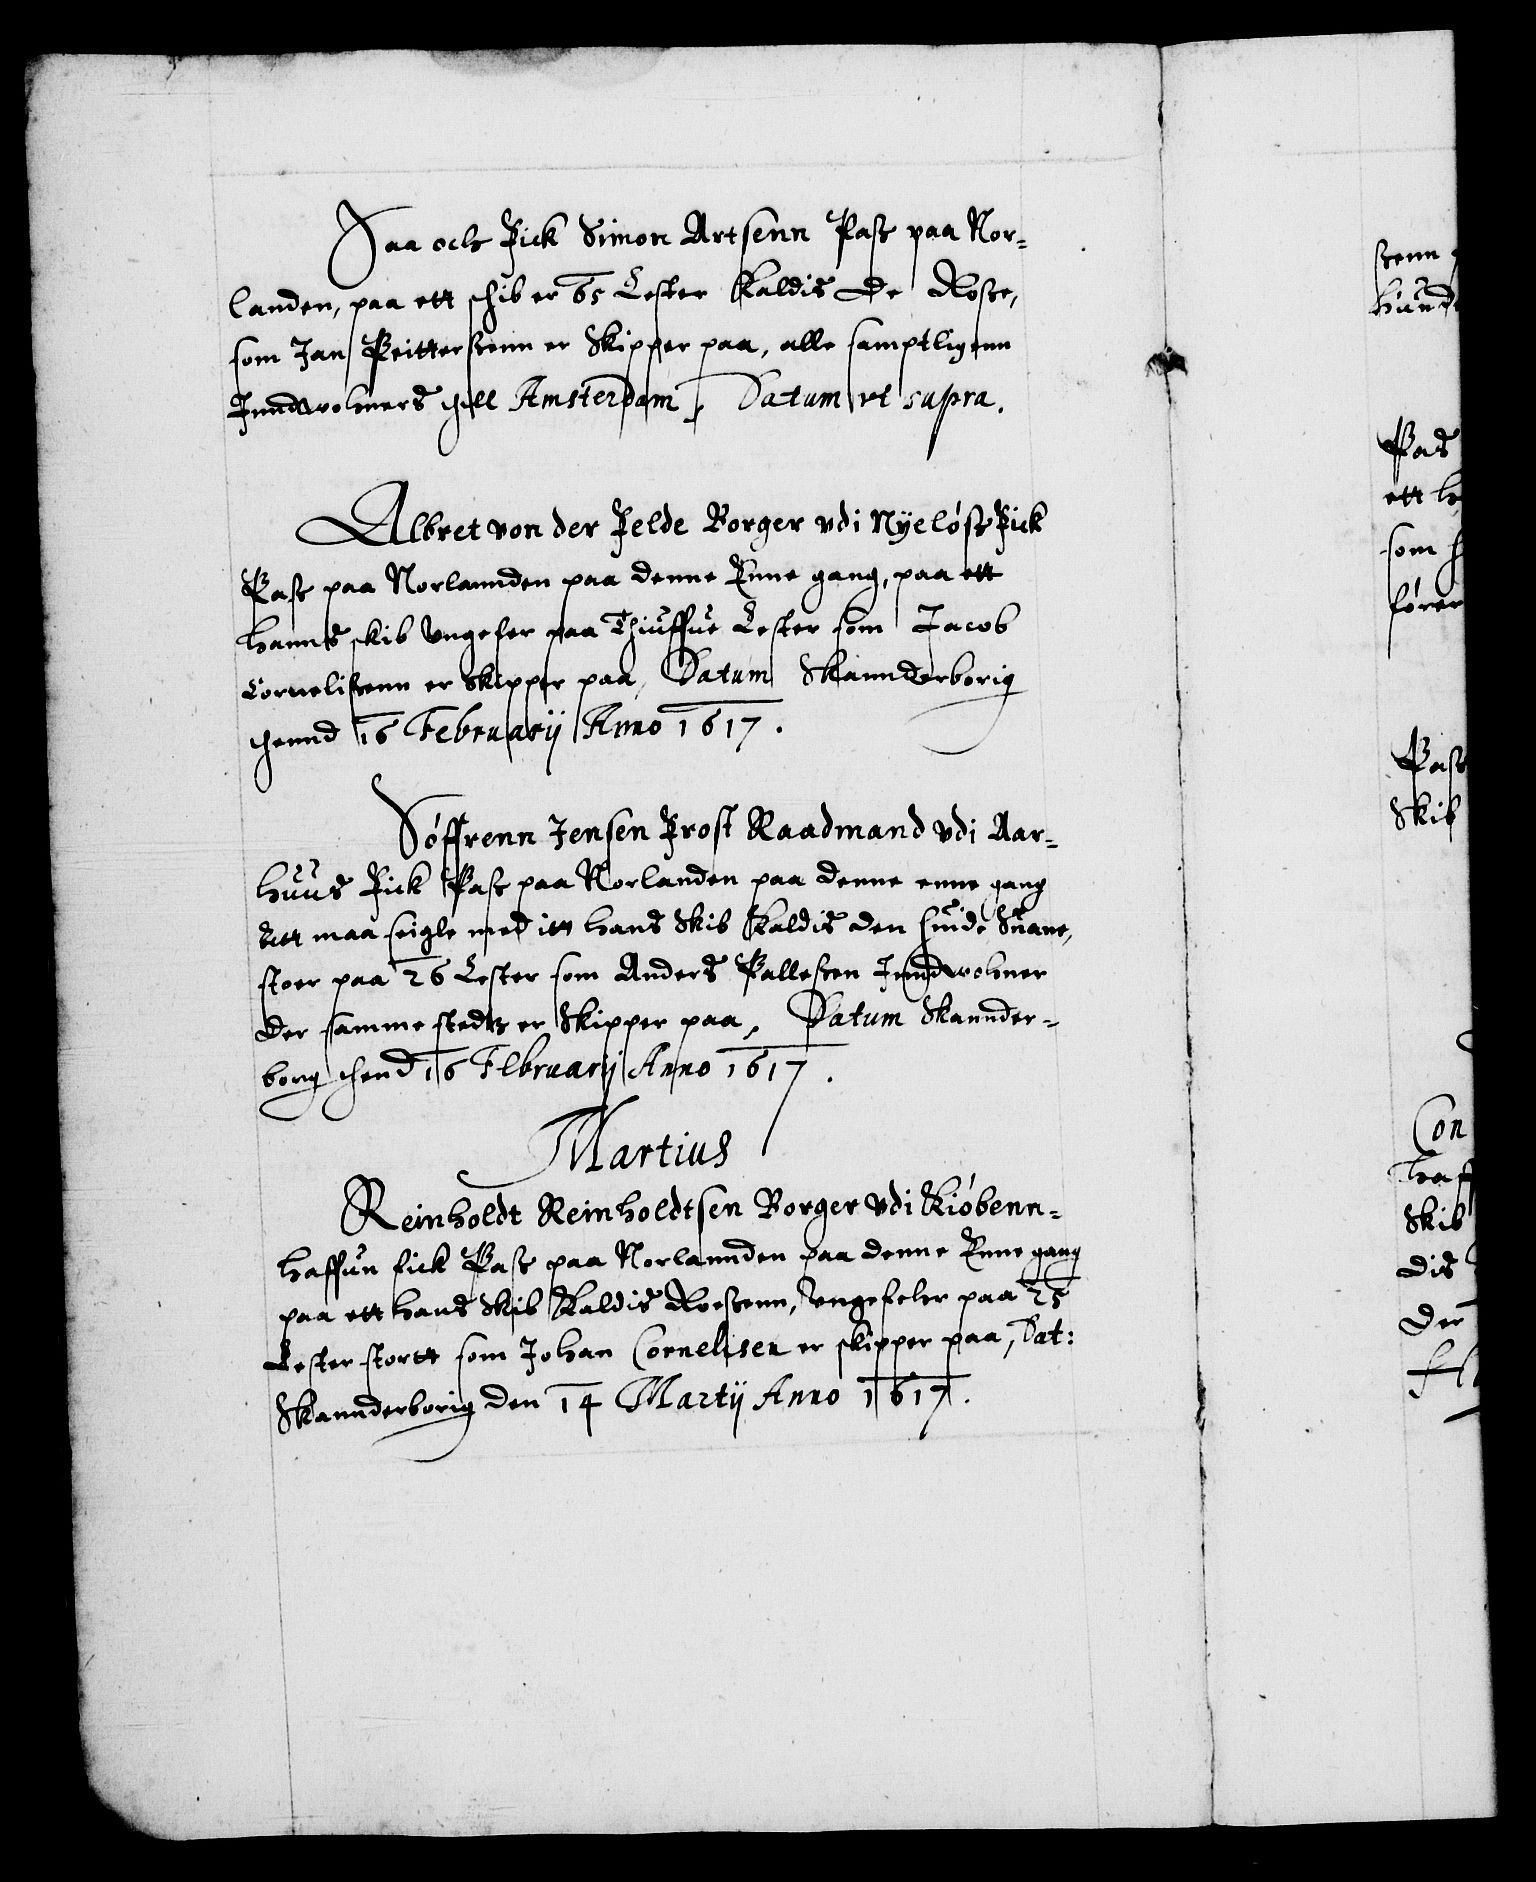 Saa och Fick Simon Artsenn Pasz paa Nor-
landen, paa ett schib er 65 Lester Kaldis De Rosze,
som Jan Peitterszenn er Skipper paa, alle samptligenn
Inndwohners thill Amsterdam, Datum vt supra.
Albret von der Felde Borger vdi Nyeløsz Fick
Pasz paa Norlannden paa denne Enne gang, paa ett
hanns skib Vngefer paa Thiuffue Lester som Jacob
Corneliszenn er Skipper paa, Datum Skannderborig
thennd 16 Februarij Anno 1617.
Søffrenn Jensen Frost Raadmand vdi Aar-
huus Fick Pasz paa Norlanden paa denne enne gang
Att maa seigle med itt hans Skib Kaldis den huide Suane,
stoer paa 26 Lester som Anders Palleszen Inndwohner
der samme stedtz er Skipper paa, Datum Skannder-
borg thend 16 Februarij Anno 1617.
Martius
Reinholdt Reinholdtsen Borger vdi Kiøbenn-
haffun fick Pasz paa Norlannden paa denne Enne gang
paa ett hans Skib Kaldis Roeszenn, Vngefehr paa 25
Lester stortt som Johan Cornelisen er skipper paa, Dat:
Skannderborig den 14 Martij Anno 1617.
szenn
Pas
ett
som
fører
Pasz
Skib
Con
haff
Skib
dis
der